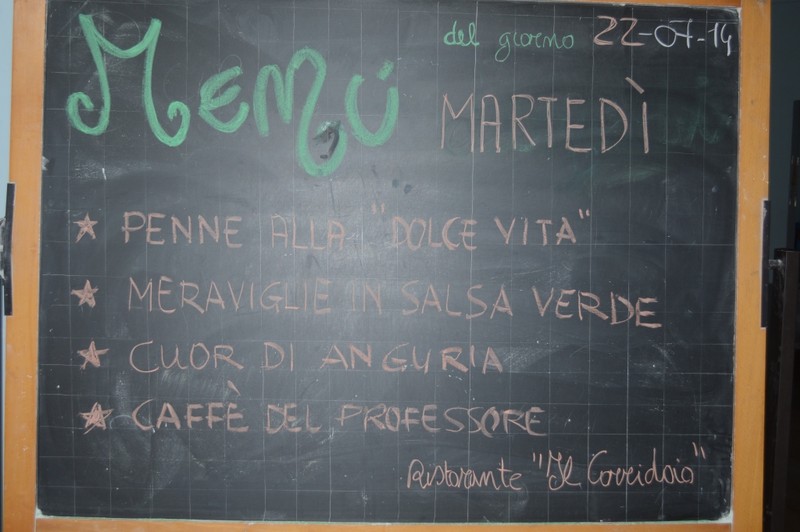 Menú del giorno 22-07-14
MARTEDÌ
PENNE ALLA "DOLCE VITA"
MERAVIGLIE IN SALSA VERDE
CUOR DI ANGURIA
CAFFÈ DEL PROFESSORE
Ristorante "Il Corridoio"